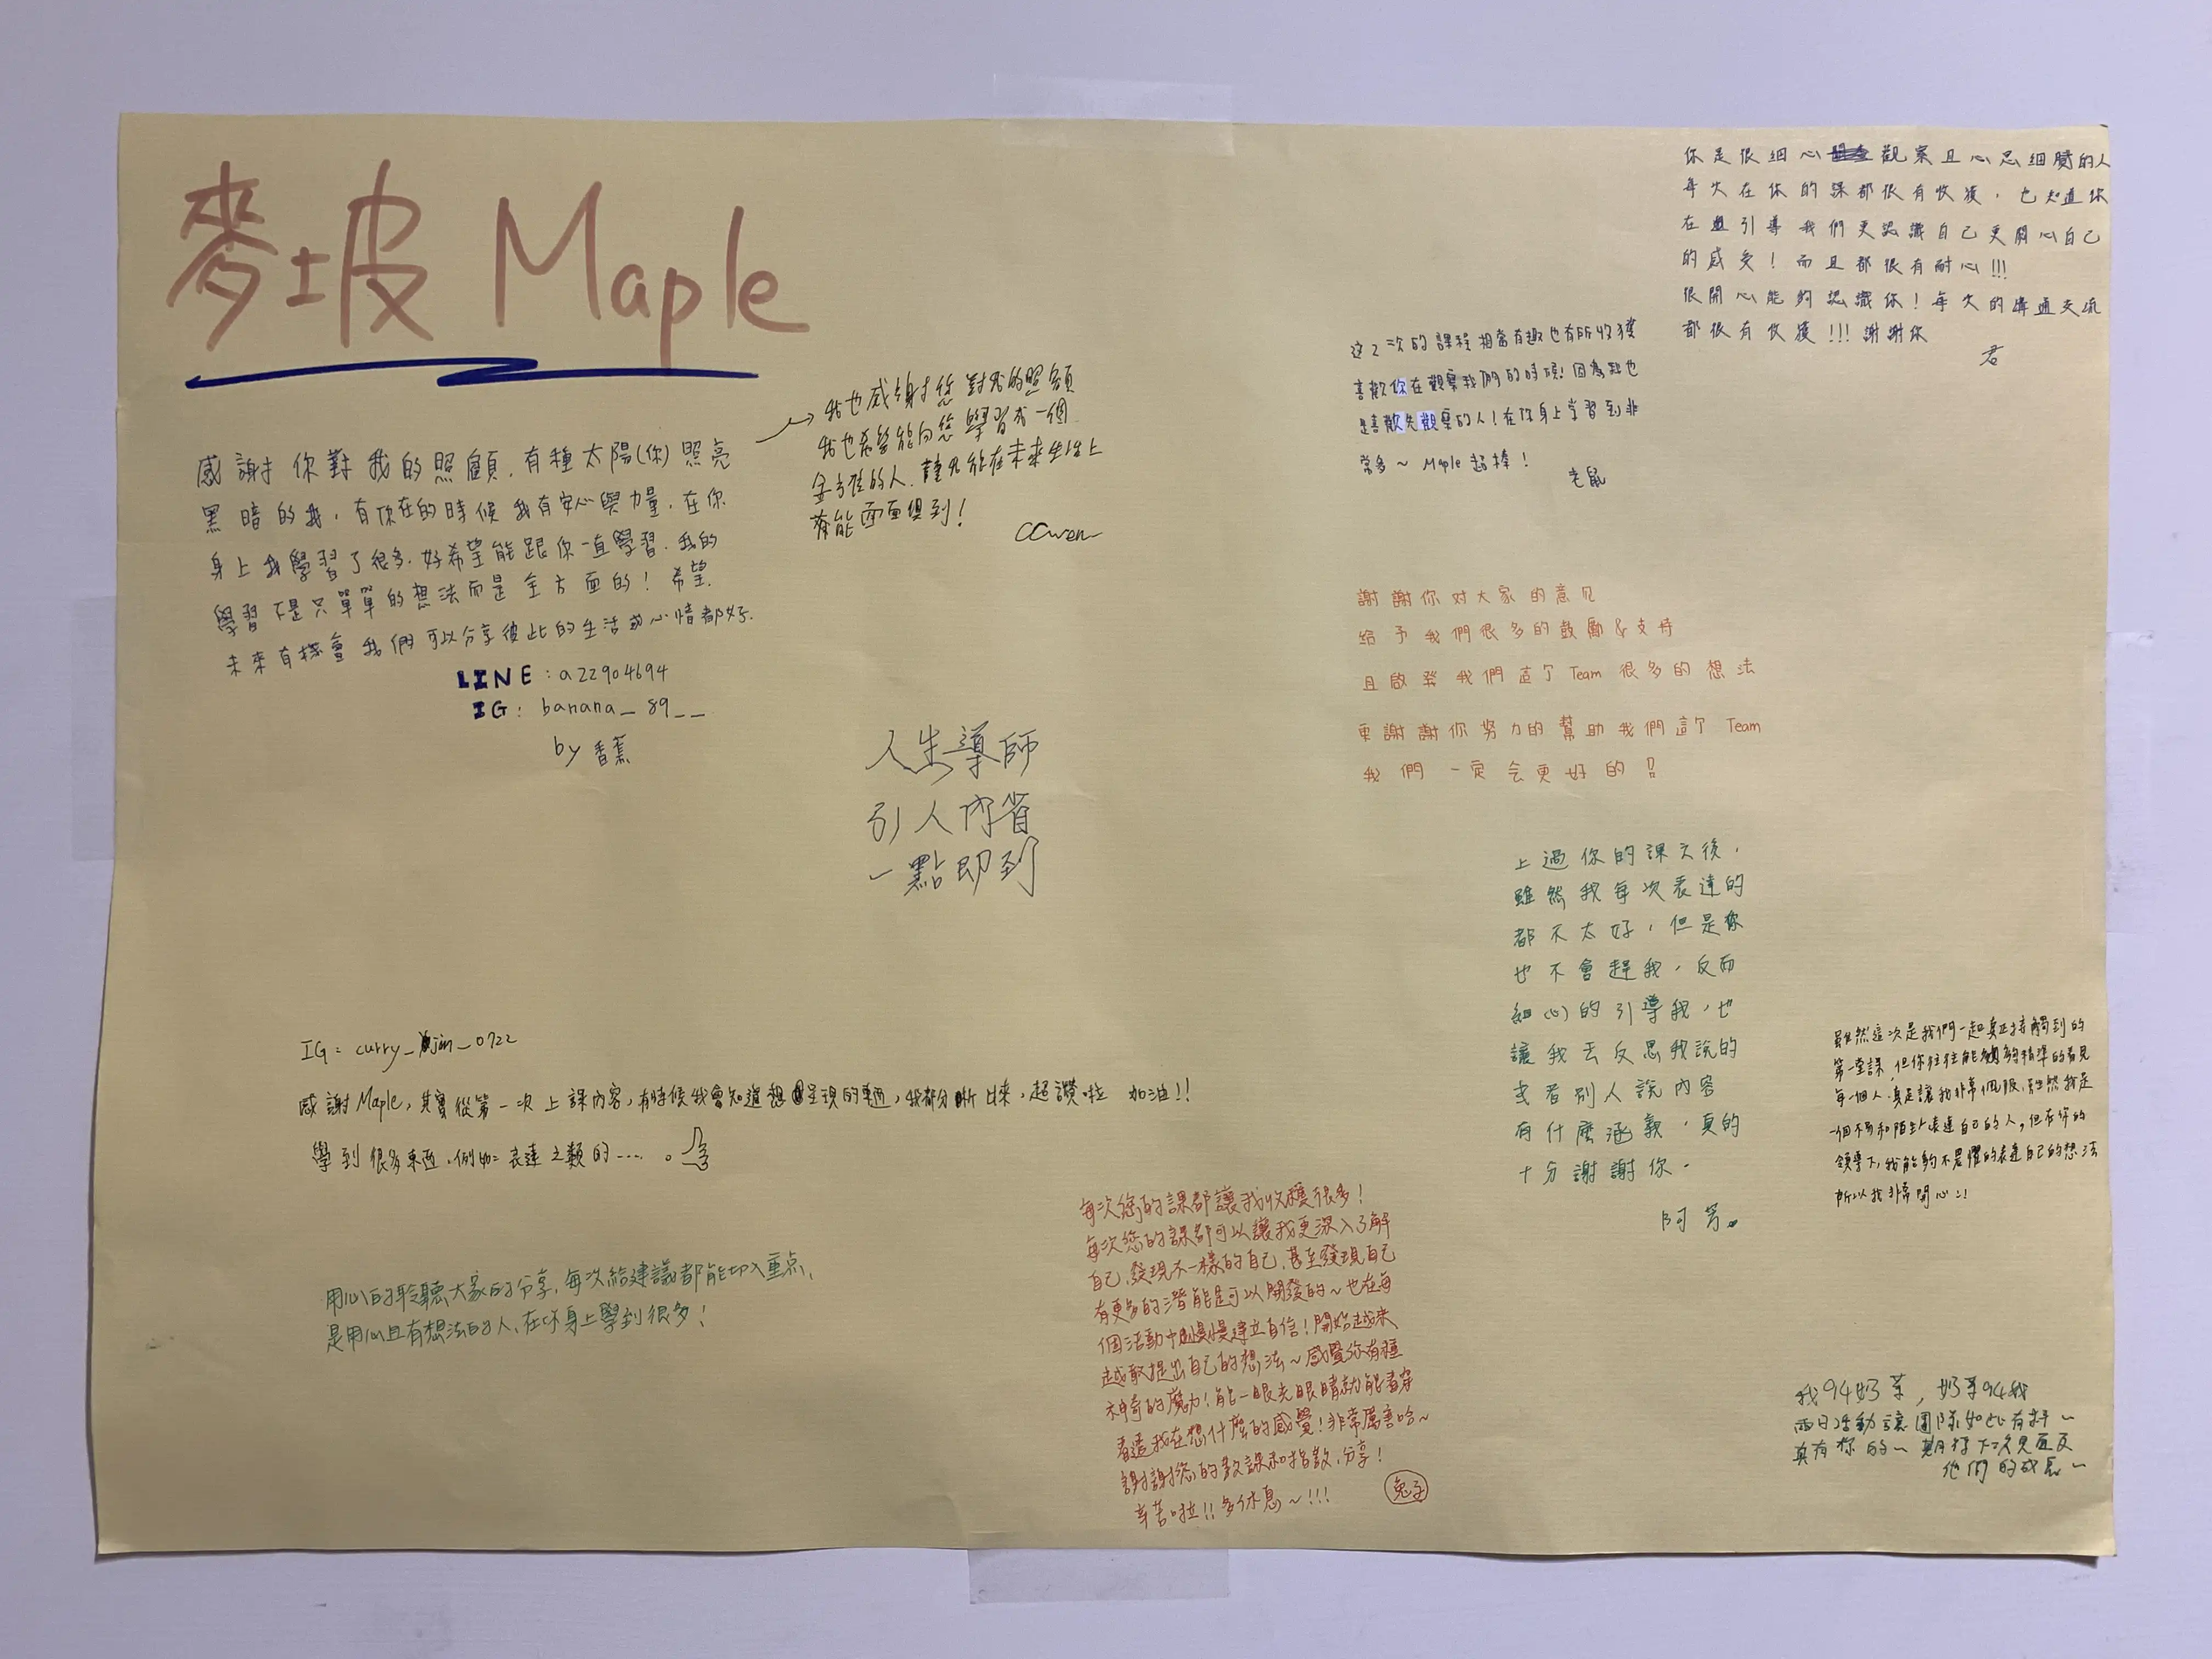 麥坡 Maple
感謝你對我的照顧，有種太陽(你)照亮
黑暗的我，有你在的時候我有安心與力量，在你
身上我學習了很多，好希望能跟你一直學習，我的
學習不是只單單的想法而是全方面的！希望
未來有機會我們可以分享彼此的生活或心情都好
LINE：a22904694
IG：banana_89__
by 香蕉
我也感謝您對我的照顧
我也希望能向您學習成一個
全方位的人，讓我能在未來生活上
能面面俱到！
CCwen
人生導師
引人內省
一點即到
IG：curry_jin_0722
感謝Maple，其實從第一次上課內容，有時候我會知道想呈現的東西，我都分晰出來，超讚啦 加油!!
學到很多東西，例如：表達之類的……。
用心的聆聽大家的分享，每次給建議都能切入重點，
是用心且有想法的人，在你身上學到很多！
你是很細心觀察且心思細膩的人
每次在你的課都很有收獲，也知道你
在引導我們更認識自己更關心自己
的感受！而且都很有耐心!!!
很開心能夠認識你！每次的溝通交流
都很有收獲!!!謝謝你
君
這2次的課程相當有趣也有所收獲
喜歡你在觀察我們的時候！因為我也
是喜歡先觀察的人！在你身上學習到非
常多～Maple超棒！
老鼠
謝謝你对大家的意見
給予我們很多的鼓勵&支持
且啟發我們這了Team很多的想法
更謝謝你努力的幫助我們這了Team
我們一定会更好的!!
上過你的課之後，
雖然我每次表達的
都不太好，但是你
也不會趕我，反而
細心的引導我，也
讓我去反思我說的
或者別人說內容
有什麼涵義，真的
十分謝謝你。
阿芳
雖然這次是我們一起真正接觸到的
第一堂課，但你往往能夠精準的看見
每一個人，真是讓我非常佩服，雖然我是
一個不易和陌生人表達自己的人，但在你的
領導下，我能夠不畏懼的表達自己的想法
所以我非常開心!!
每次您的課都讓我收穫很多！
每次您的課都可以讓我更深入了解
自己，發現不一樣的自己，甚至發現自己
有更多的潛能是可以開發的～也在每
個活動中慢慢建立自信！開始越來
越敢提出自己的想法～感覺你有種
神奇的魔力！能一眼光眼睛就能看穿
看透我在想什麼的感覺！非常厲害哈～
謝謝您的教課和指教、分享！
辛苦啦!!多休息～!!!
兔子
我94奶茶，奶茶94我
兩日活動讓團隊如此有
真有你的～期待下次見面及
他們的成長～